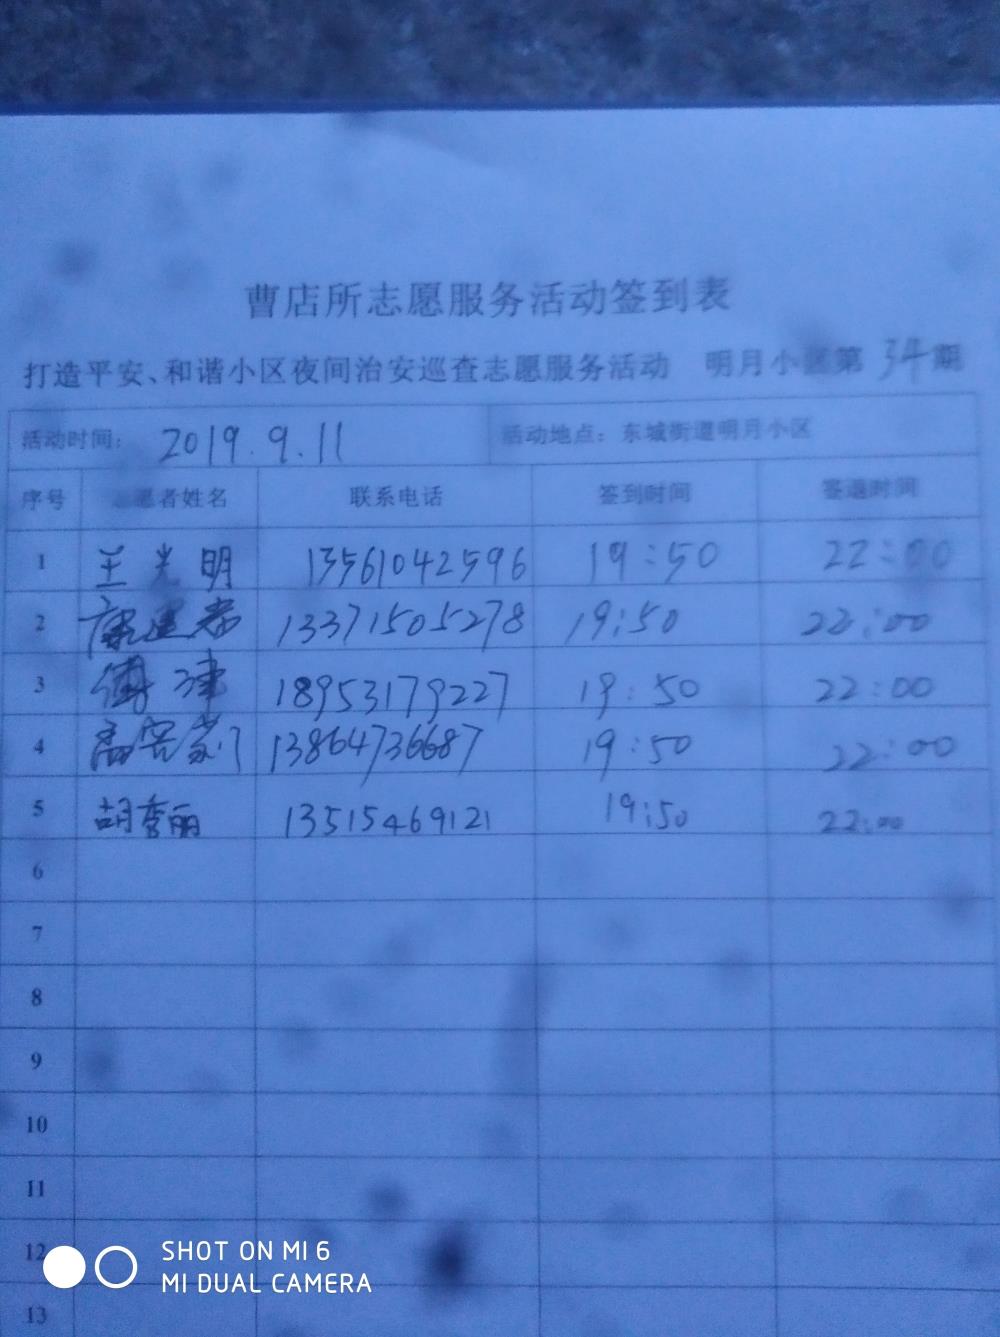 曹店所志愿服务活动签到表
打造平安、和谐小区夜间治安巡查志愿服务活动 明月小区第34期
活动时间： 2019.9.11 活动地点：东城街道明月小区
序号 志愿者姓名 联系电话 签到时间 签退时间
1 王光明 13561042596 19:50 22:00
2 13371505278 19:50 22:00
3 18953179227 19:50 22:00
4 13864736687 19:50 22:00
5 胡秀丽 13515469121 19:50 22:00
6
7
8
9
10
11
12
13
SHOT ON MI 6
MI DUAL CAMERA